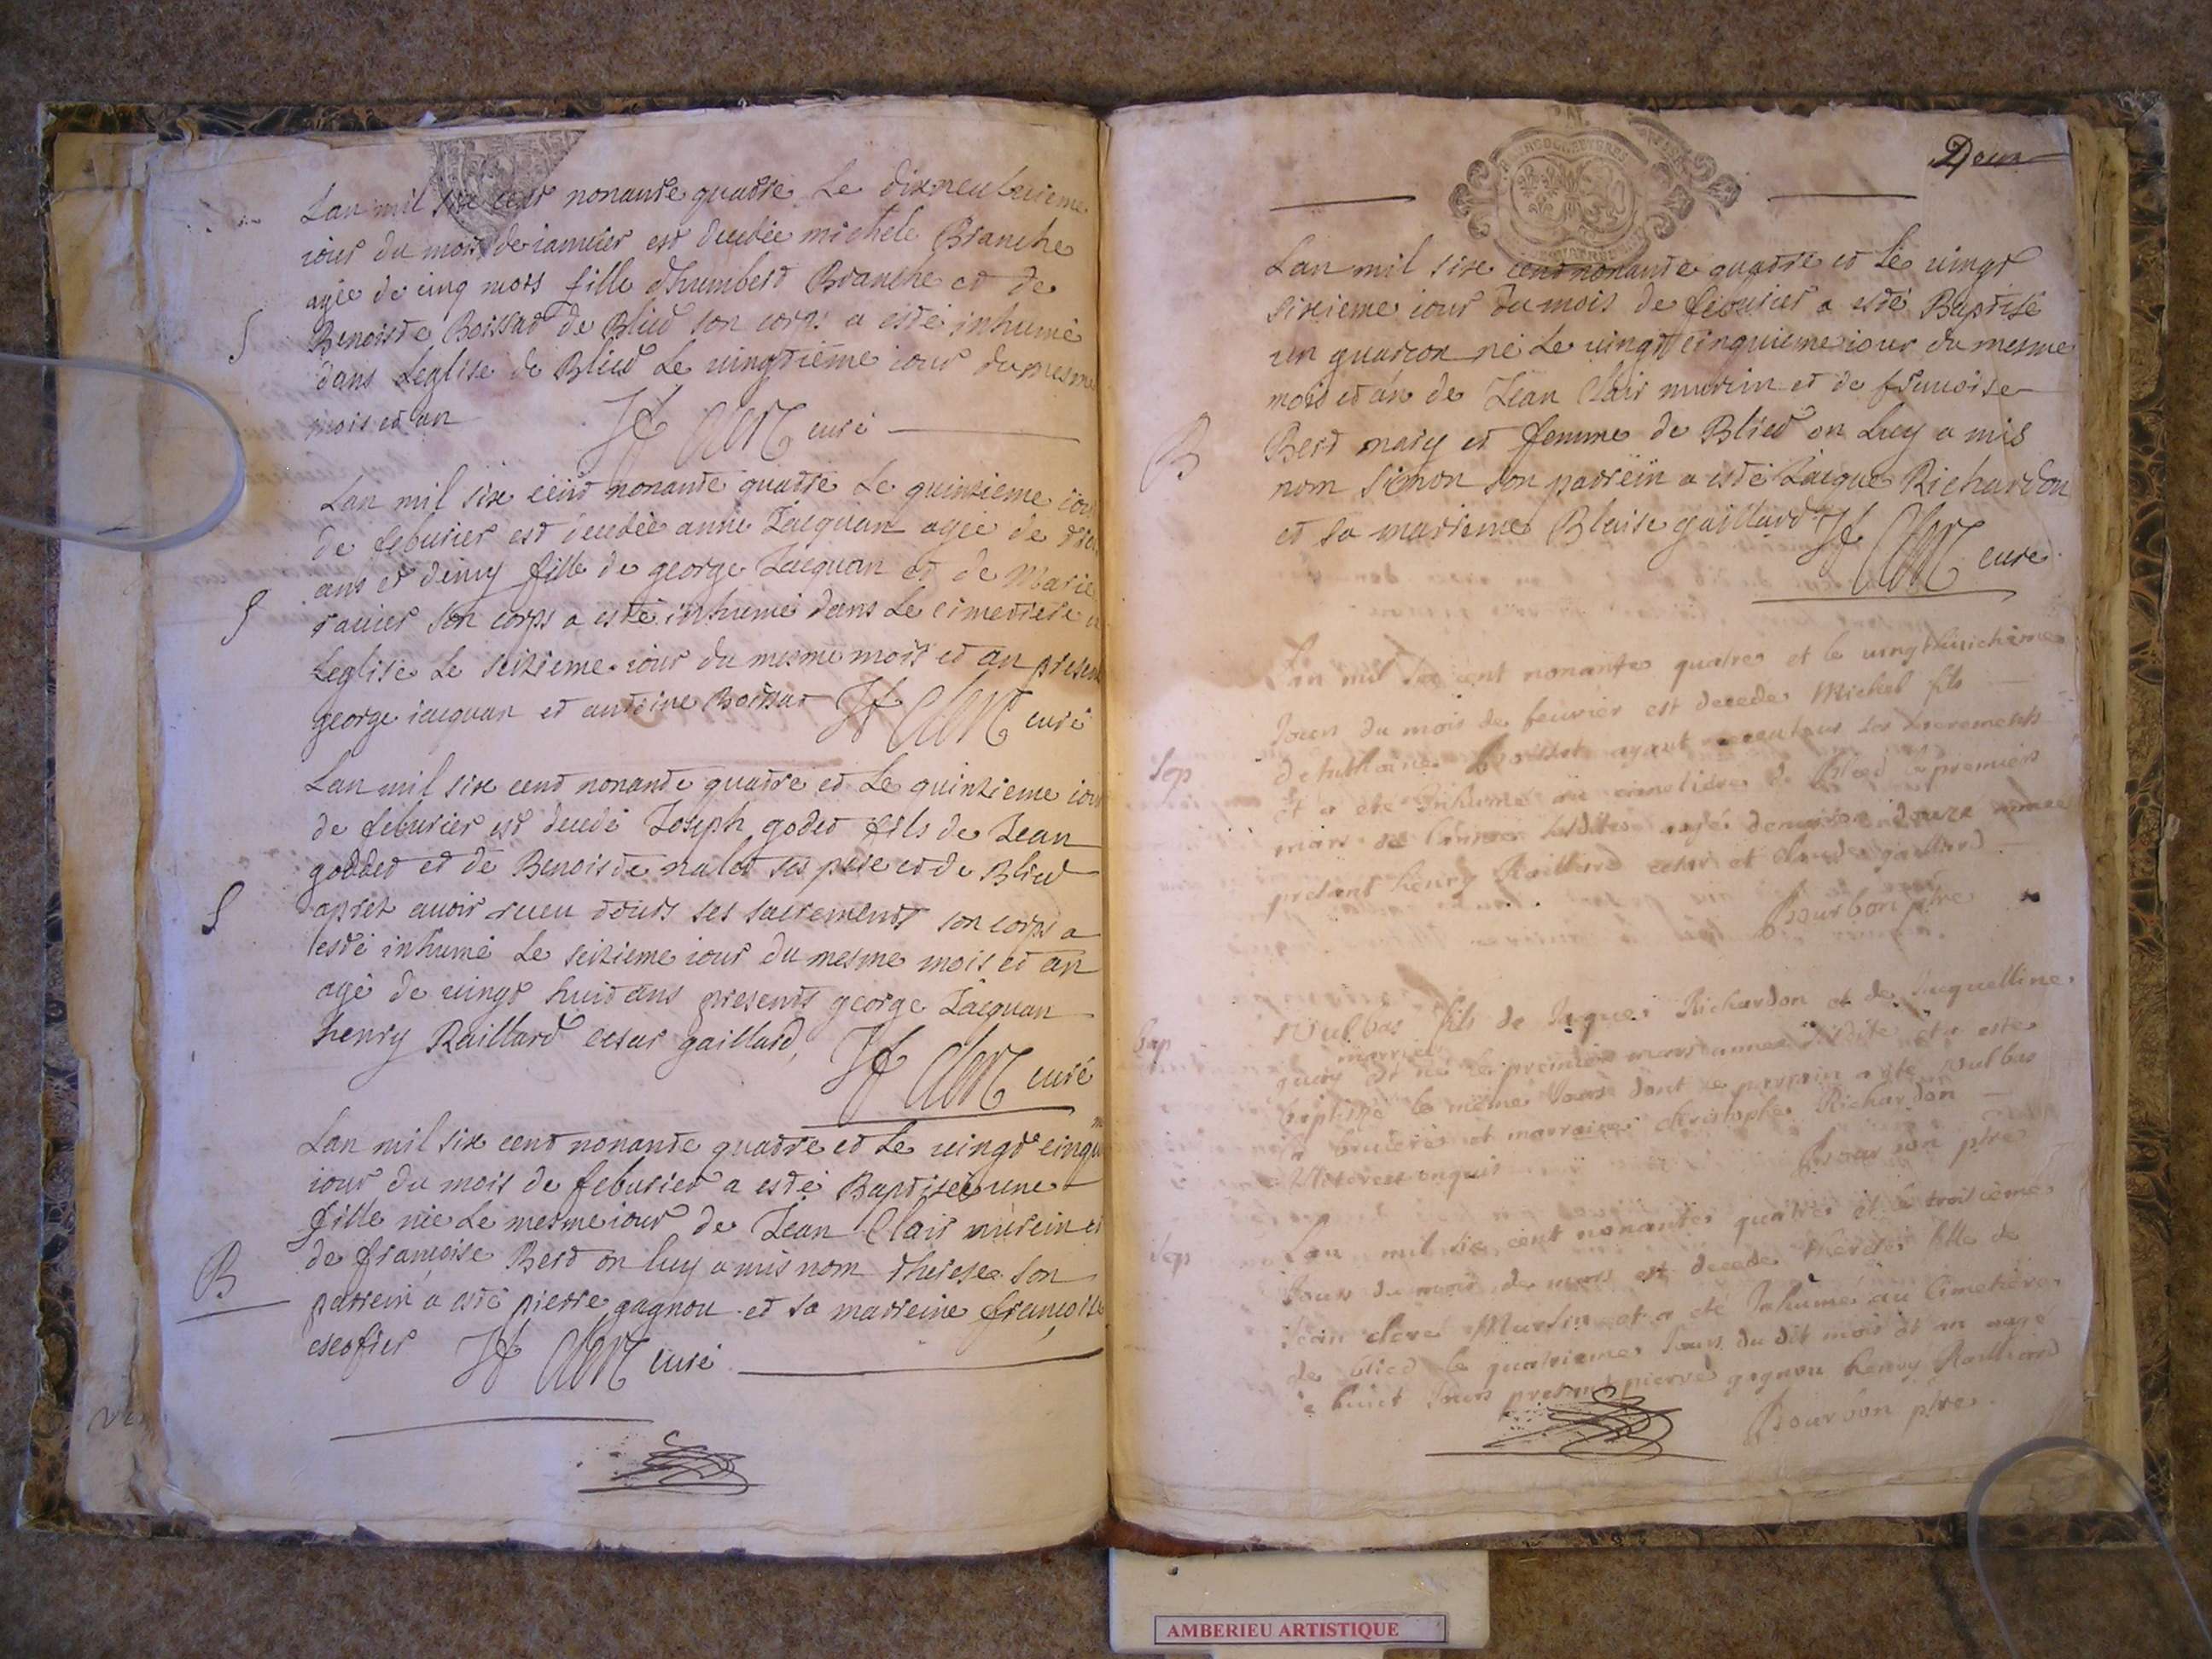 Lan mil six cent nonante quatre Le dixneufuieme
iour du mois de ianuier est decedée michele Branche
agée de cinq mois fille dhumbert Branche et de
S
Benoiste Boissat de Blied son corps a esté inhumé
dans Leglise de Blied Le uingtieme iour du mesme
mois et an
curé
Lan mil six cent nonante quatre Le quinzieme iour
de feburier est decedée anne Iacquan agée de
ans et demy fille de george Iacquan et de Marie
S
rauier son corps a esté inhumé dans Le cimetiere
Leglise Le seizieme iour du mesme mois et an presen
george iacquan et antoine Boissat curé
Lan mil six cent nonante quatre et Le quinzieme iour
de feburier est decedé Ioseph godet fils de Iean
goddet et de Benoiste nalet ses pere et de Blied
S
apret auoir receu tours ses sacrements son corps a
esté inhumé Le seizieme iour du mesme mois et an
agé de uingt huit ans presents george Iacquan
henry Raillard cesar gaillard,
curé
Lan mil six cent nonante quatre et Le uingt cinqu
iour du mois de feburier a esté Baptiseé une
fille née Le mesme iour de Iean Clair murein et
de francoise Bert on luy a mis nom therese son
B
parrein a esté pierre gagnou et sa marreine francoise
escofier curé
Deux
Lan mil six cent nonante quatre et Le uingt
sixieme iour du mois de feburier a esté Baptisé
un guarcon né Le uingt cinquieme iour du mesme
mois et an de Iean Clair murein et de francoise
B
Bert mary et femme de Blied on Luy a mis
nom simon son parrein a esté Iacque Richardon
et sa marreine Blaise gaillard
curé
Lan mil six cent nonante quatre et le uingthuichème
Iour du mois de feuvrier est decede Michel fils
Sep
de Anthoine Boissat ayant receu tous les sacrements
et a ete Inhumé au cimetière de Blied premier
mars de l'annee susditte agé denuiron douze
presant henry Raillard cesar et claude gaillard
Bourbon ptre
Bap
Vulbas fils de Iaques Richardon et de Iacquelline
mourier
quay et né le premier mars annee susdite et a este
baptisé le mème Iour dont le parrain a ete Vulbas
bruteres et marraine christophle Richardon
Bourbon ptre
Sep
Lan mil six cent nonante quatre et le troisieme
Iour du mois de mars est decede therese fille de
Iean clere Murlin et a ete Inhumé au Cimetière
de blied le quatrieme Iour du dit mois et an agé
de huict Iours presant pierre gagnou henry Raillard
Bourbon ptre.
AMBERIEU ARTISTIQUE